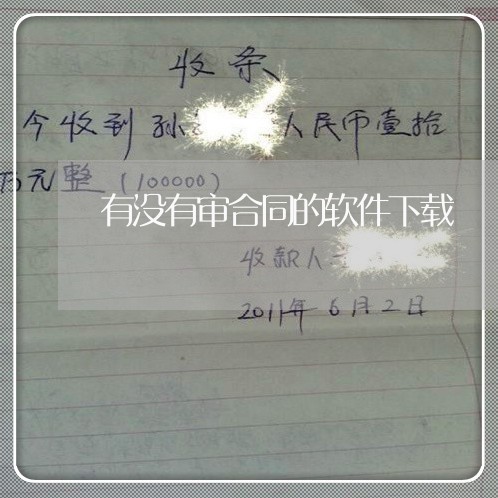 收条
今收到孙 人民币壹拾
万元整（100000）
有没有审合同的软件下载
收款人
2011年6月2日